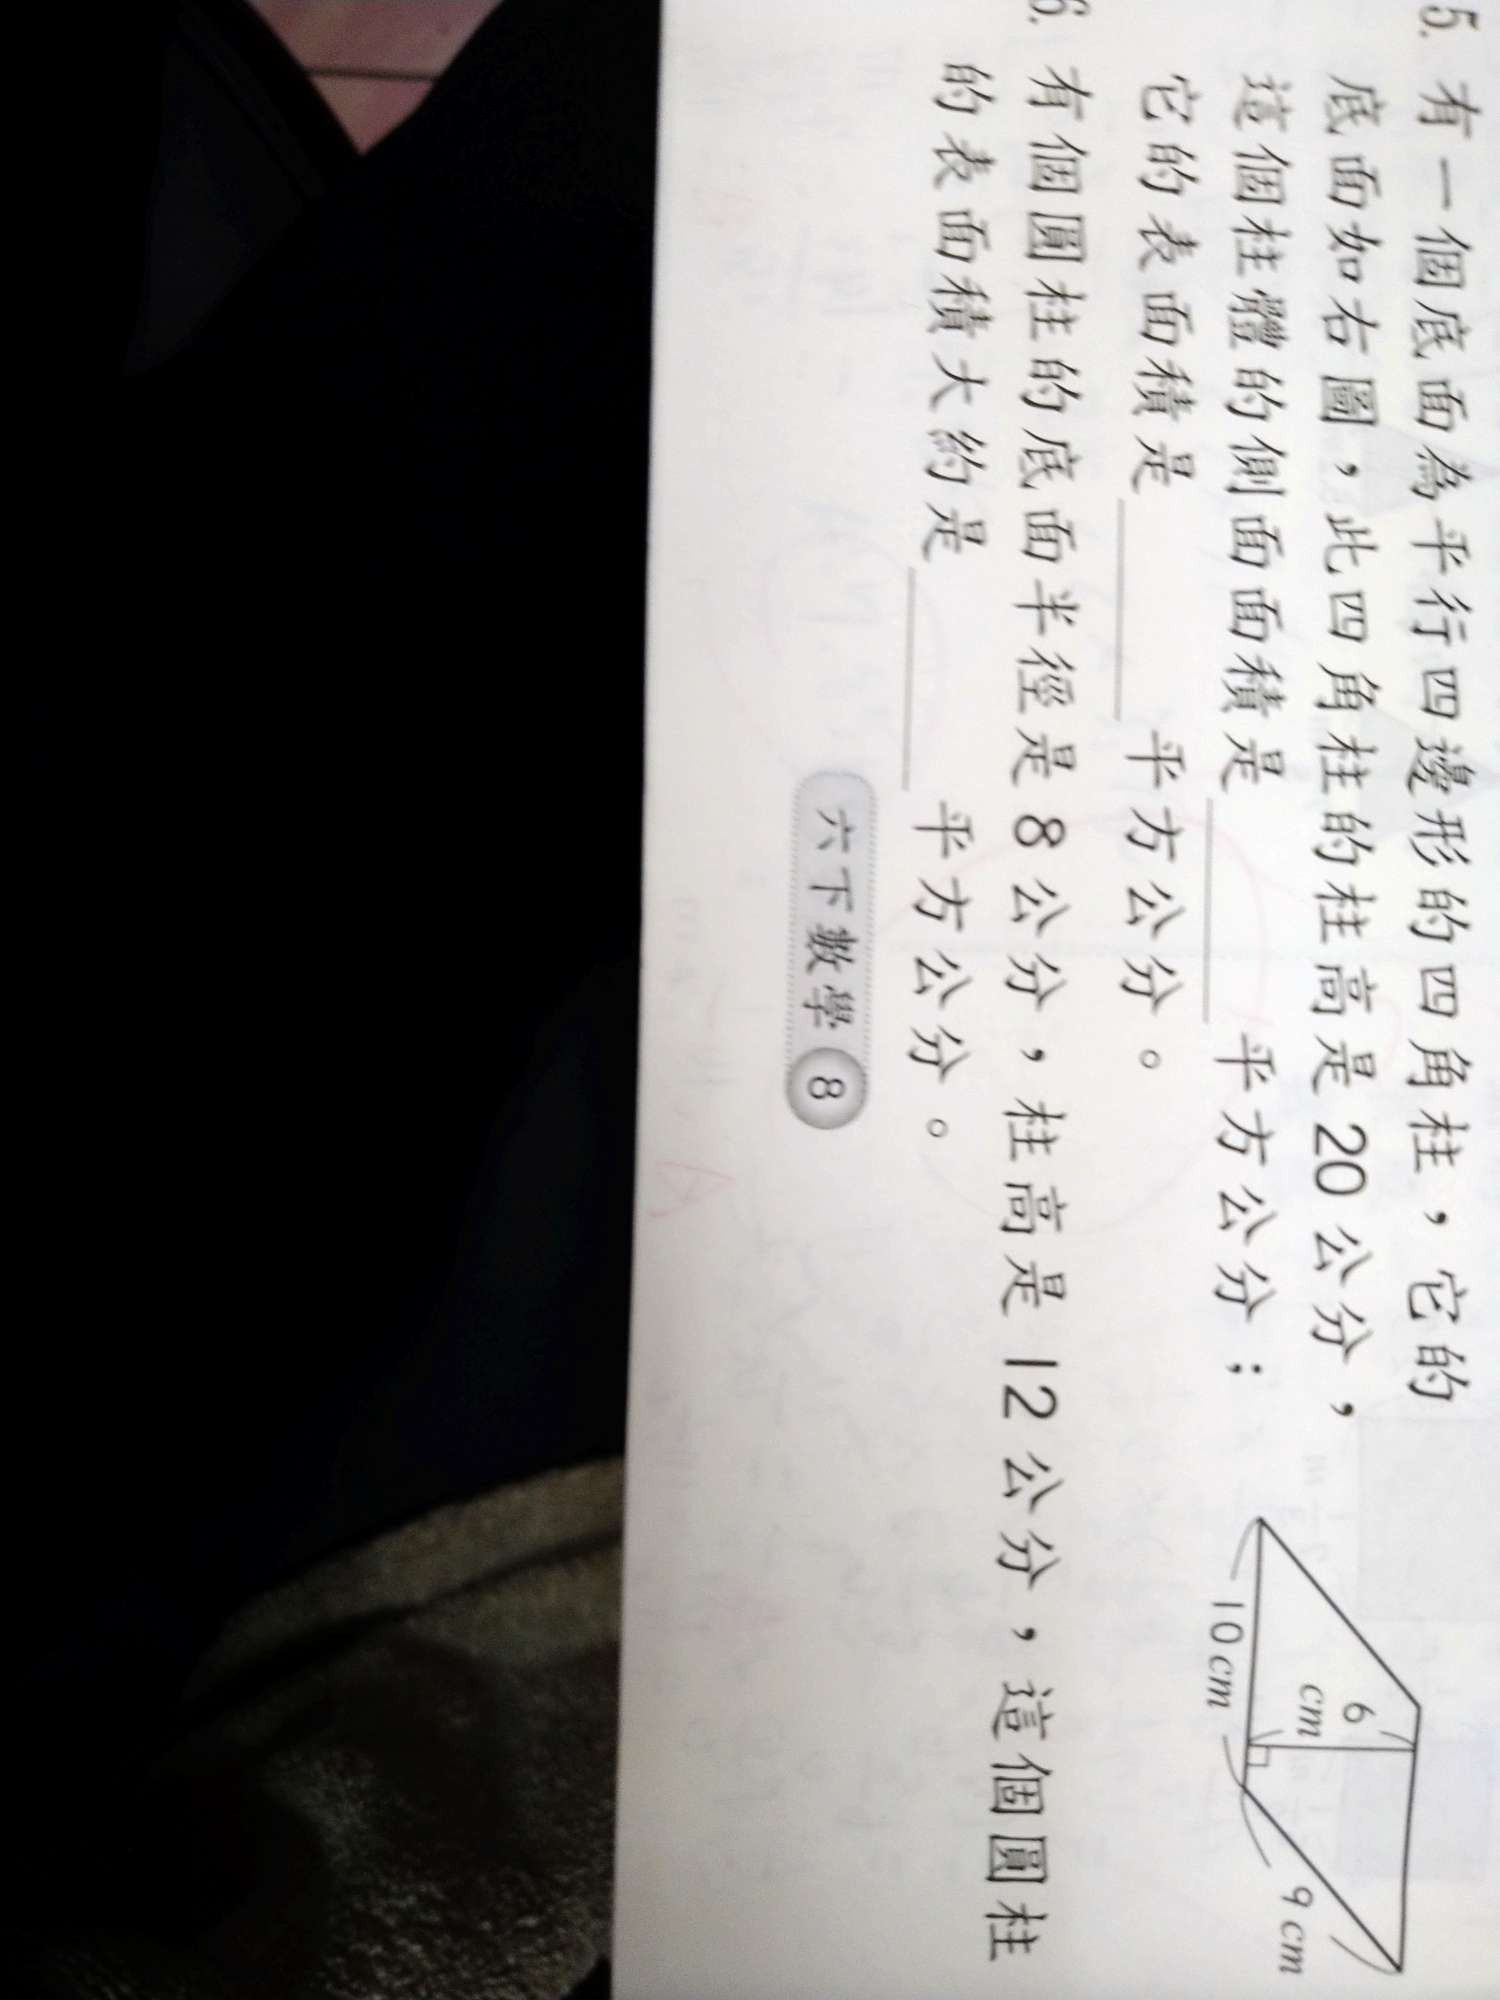 5. 有一個底面為平行四邊形的四角柱，它的
底面如右圖，此四角柱的柱高是20公分，
這個柱體的側面面積是______平方公分；
它的表面積是______平方公分。
6 cm
10 cm
9 cm
6. 有個圓柱的底面半徑是8公分，柱高是12公分，這個圓柱
的表面積大約是______平方公分。
六下數學 8